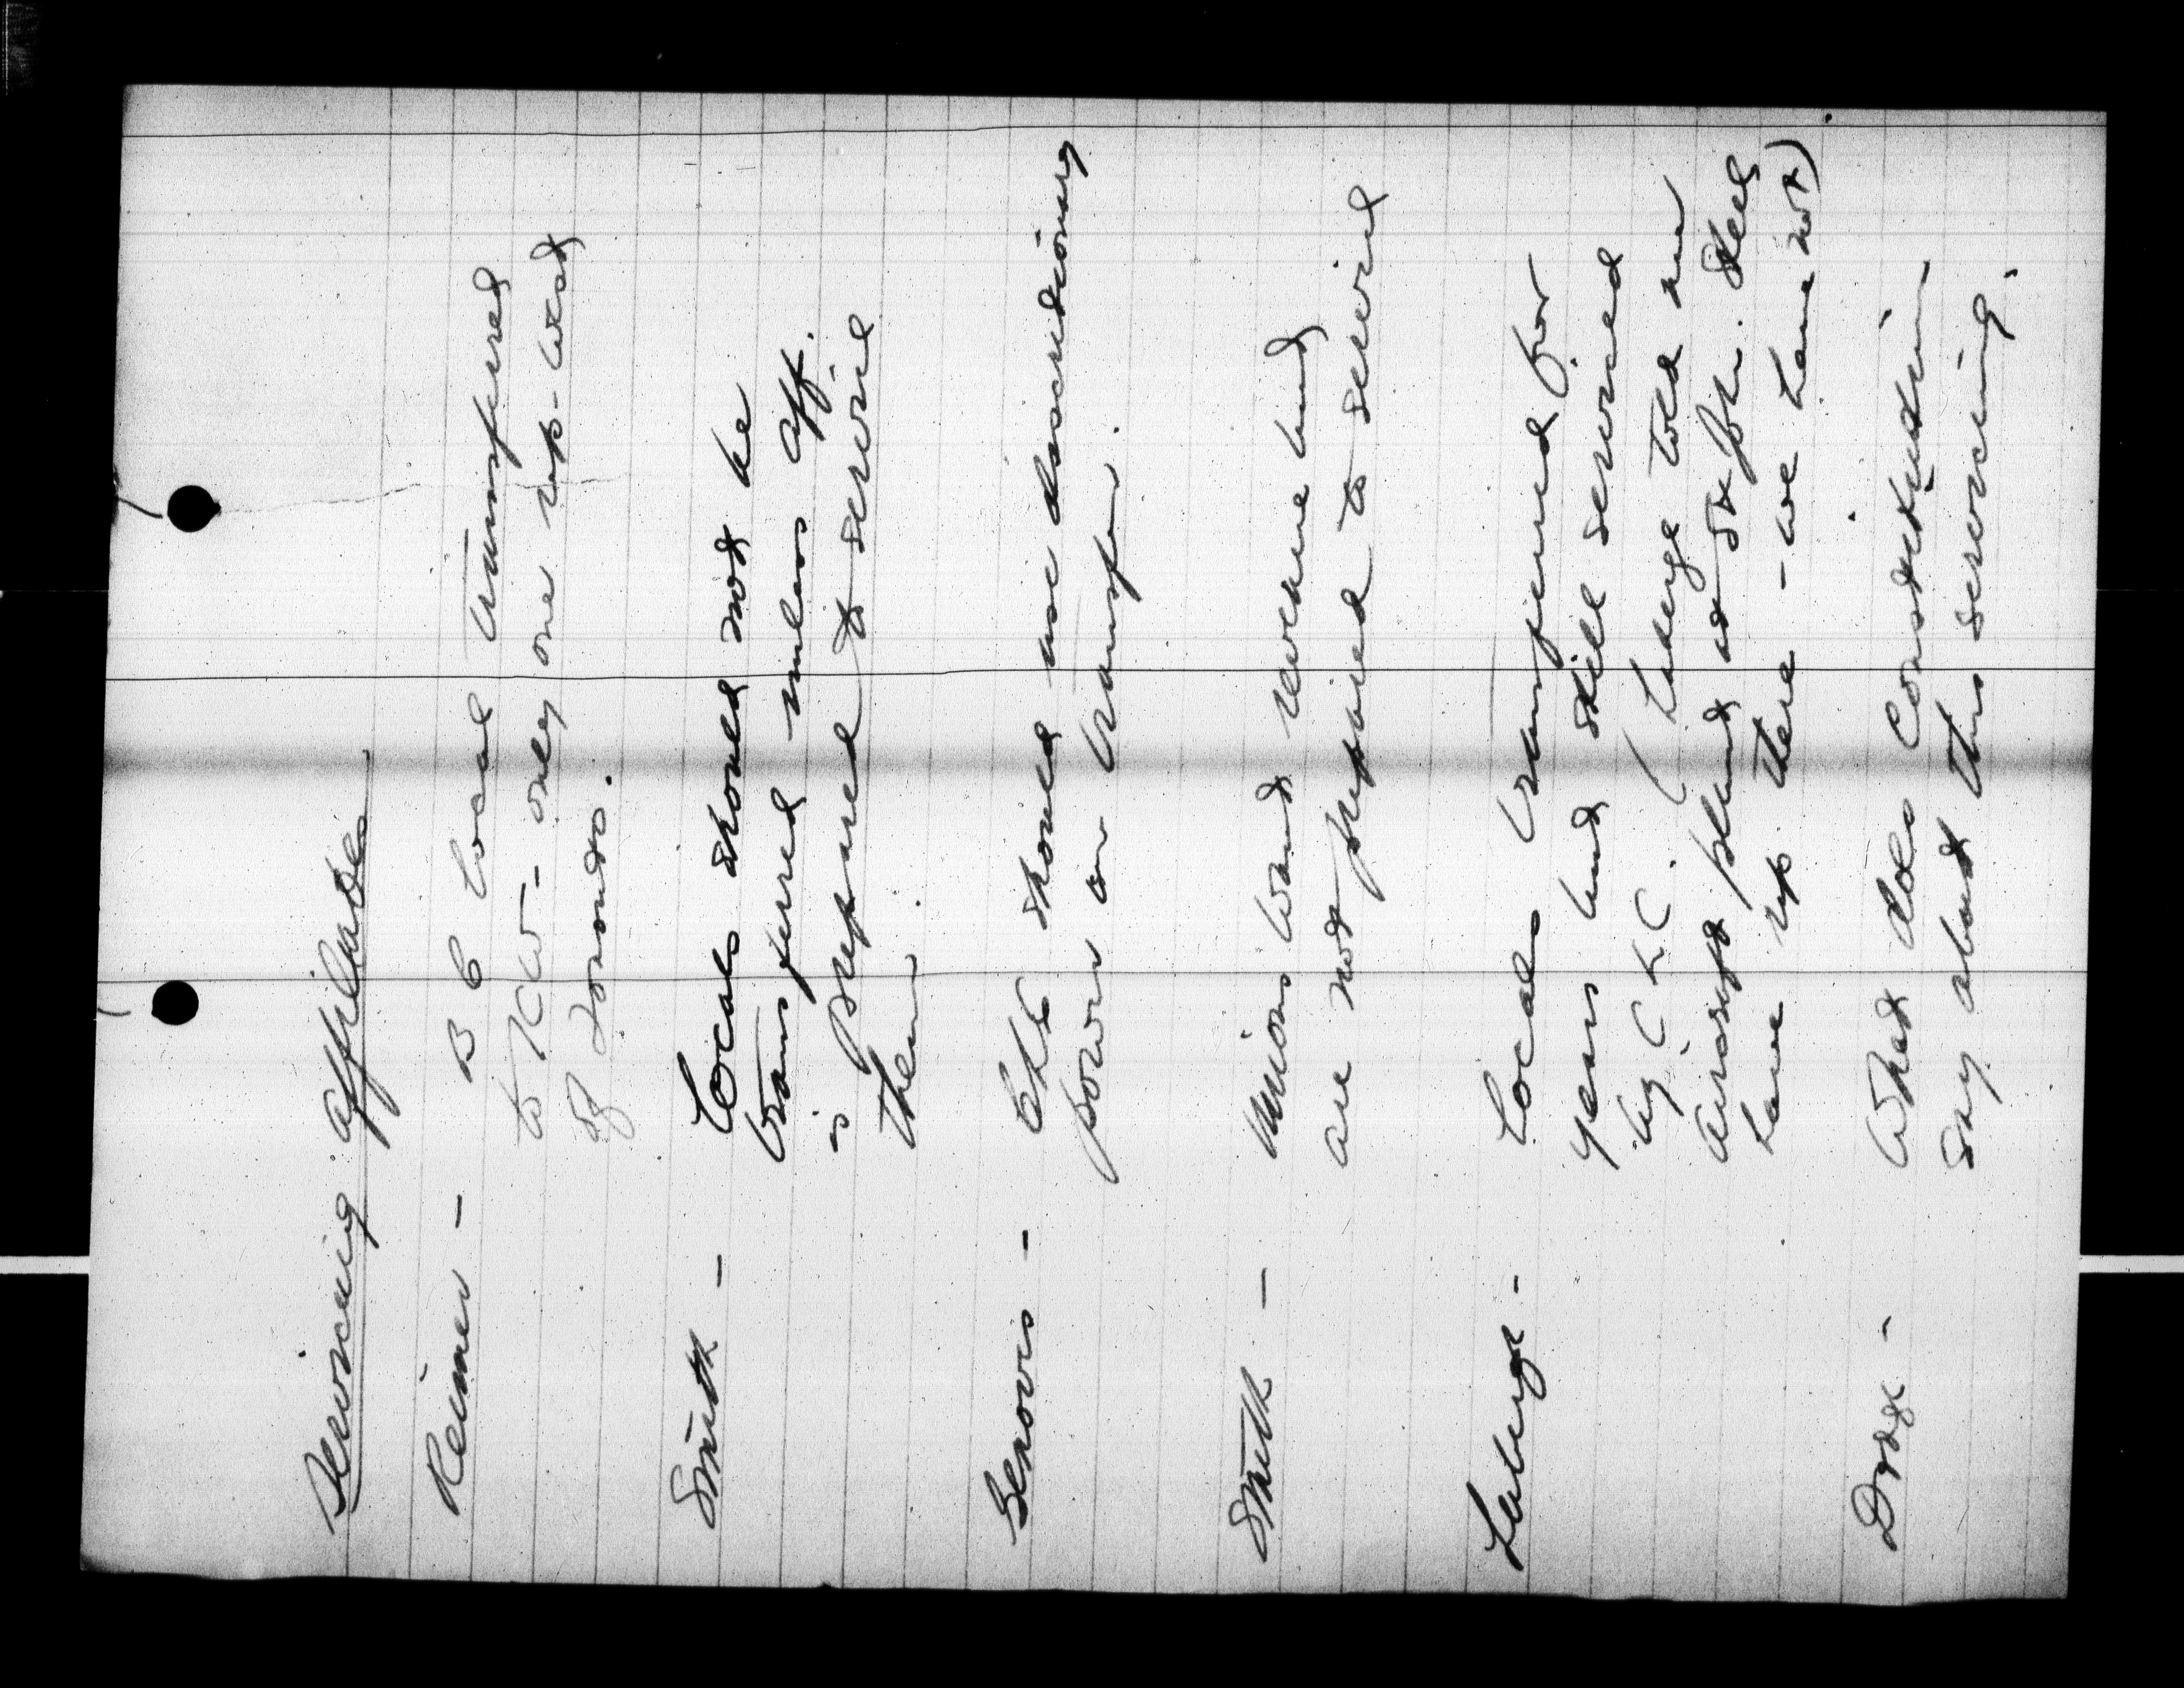 Servicing affiliates
Reimer - B C Local transferred
to K W - only one rep - west
of Toronto.
Smith - Locals should not be
transferred unless aff.
is prepared to service
them.
Genovis - CLC should use discretionary
power on transfer.
Smith - Unions want revenue but
are not prepared to service
Laberge - Locals transferred for
years but still serviced
by CLC. (Laberge told me
aircraft plant at St Jch. Steel
have rep there - we have not)
Dodge - What does Constitution
say about this servicing.